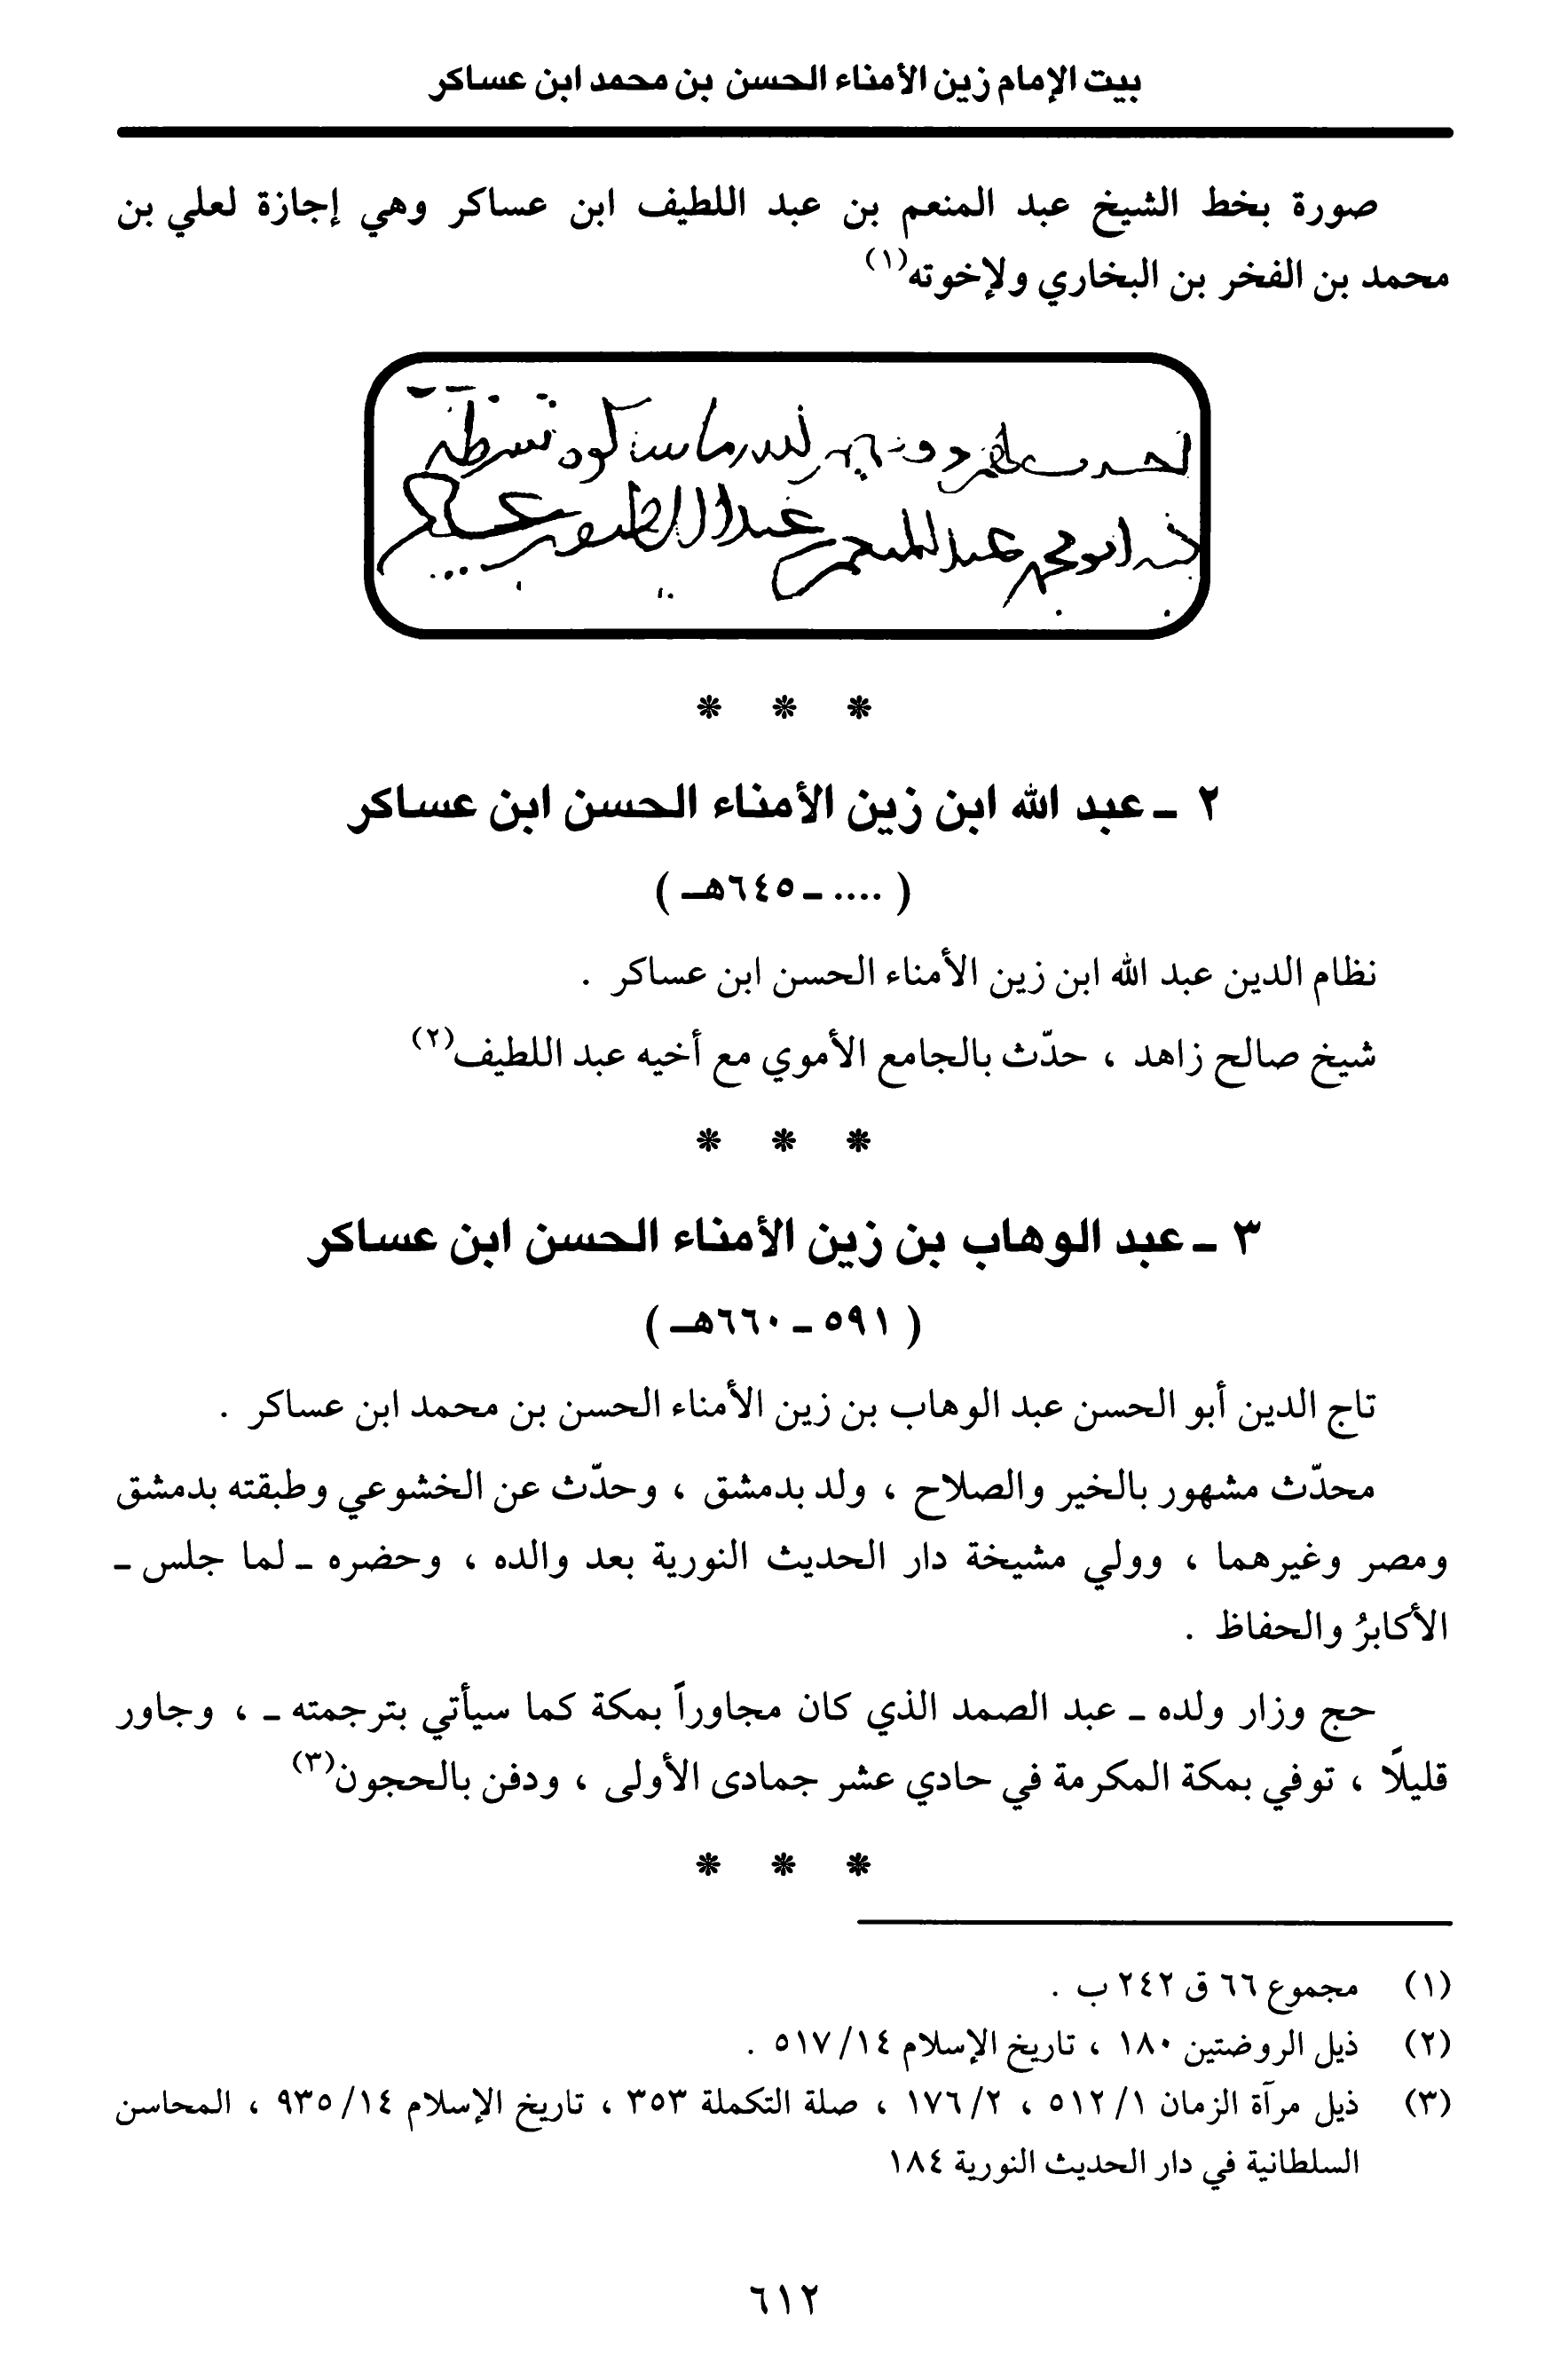 بيت الإمام زين الأمناء الحسن بن محمد ابن عساكر
صورة بخط الشيخ عبد المنعم بن عبد اللطيف ابن عساكر وهي إجازة لعلي بن
محمد بن الفخر بن البخاري ولإخوته(١)
ابو محمد عبد المنعم بن عبد اللطيف بن عساكر
* * *
٢ ـ عبد الله ابن زين الأمناء الحسن ابن عساكر
( .... ـ ٦٤٥هـ )
نظام الدين عبد الله ابن زين الأمناء الحسن ابن عساكر .
شيخ صالح زاهد ، حدّث بالجامع الأموي مع أخيه عبد اللطيف(٢)
* * *
٣ ـ عبد الوهاب بن زين الأمناء الحسن ابن عساكر
( ٥٩١ ـ ٦٦٠هـ )
تاج الدين أبو الحسن عبد الوهاب بن زين الأمناء الحسن بن محمد ابن عساكر .
محدّث مشهور بالخير والصلاح ، ولد بدمشق ، وحدّث عن الخشوعي وطبقته بدمشق
ومصر وغيرهما ، وولي مشيخة دار الحديث النورية بعد والده ، وحضره ـ لما جلس ـ
الأكابرُ والحفاظ .
حج وزار ولده ـ عبد الصمد الذي كان مجاوراً بمكة كما سيأتي بترجمته ـ ، وجاور
قليلًا ، توفي بمكة المكرمة في حادي عشر جمادى الأولى ، ودفن بالحجون(٣)
* * *
(١) مجموع ٦٦ ق ٢٤٢ ب .
(٢) ذيل الروضتين ١٨٠ ، تاريخ الإسلام ٥١٧/١٤ .
(٣) ذيل مرآة الزمان ٥١٢/١ ، ١٧٦/٢ ، صلة التكملة ٣٥٣ ، تاريخ الإسلام ٩٣٥/١٤ ، المحاسن
السلطانية في دار الحديث النورية ١٨٤
٦١٢